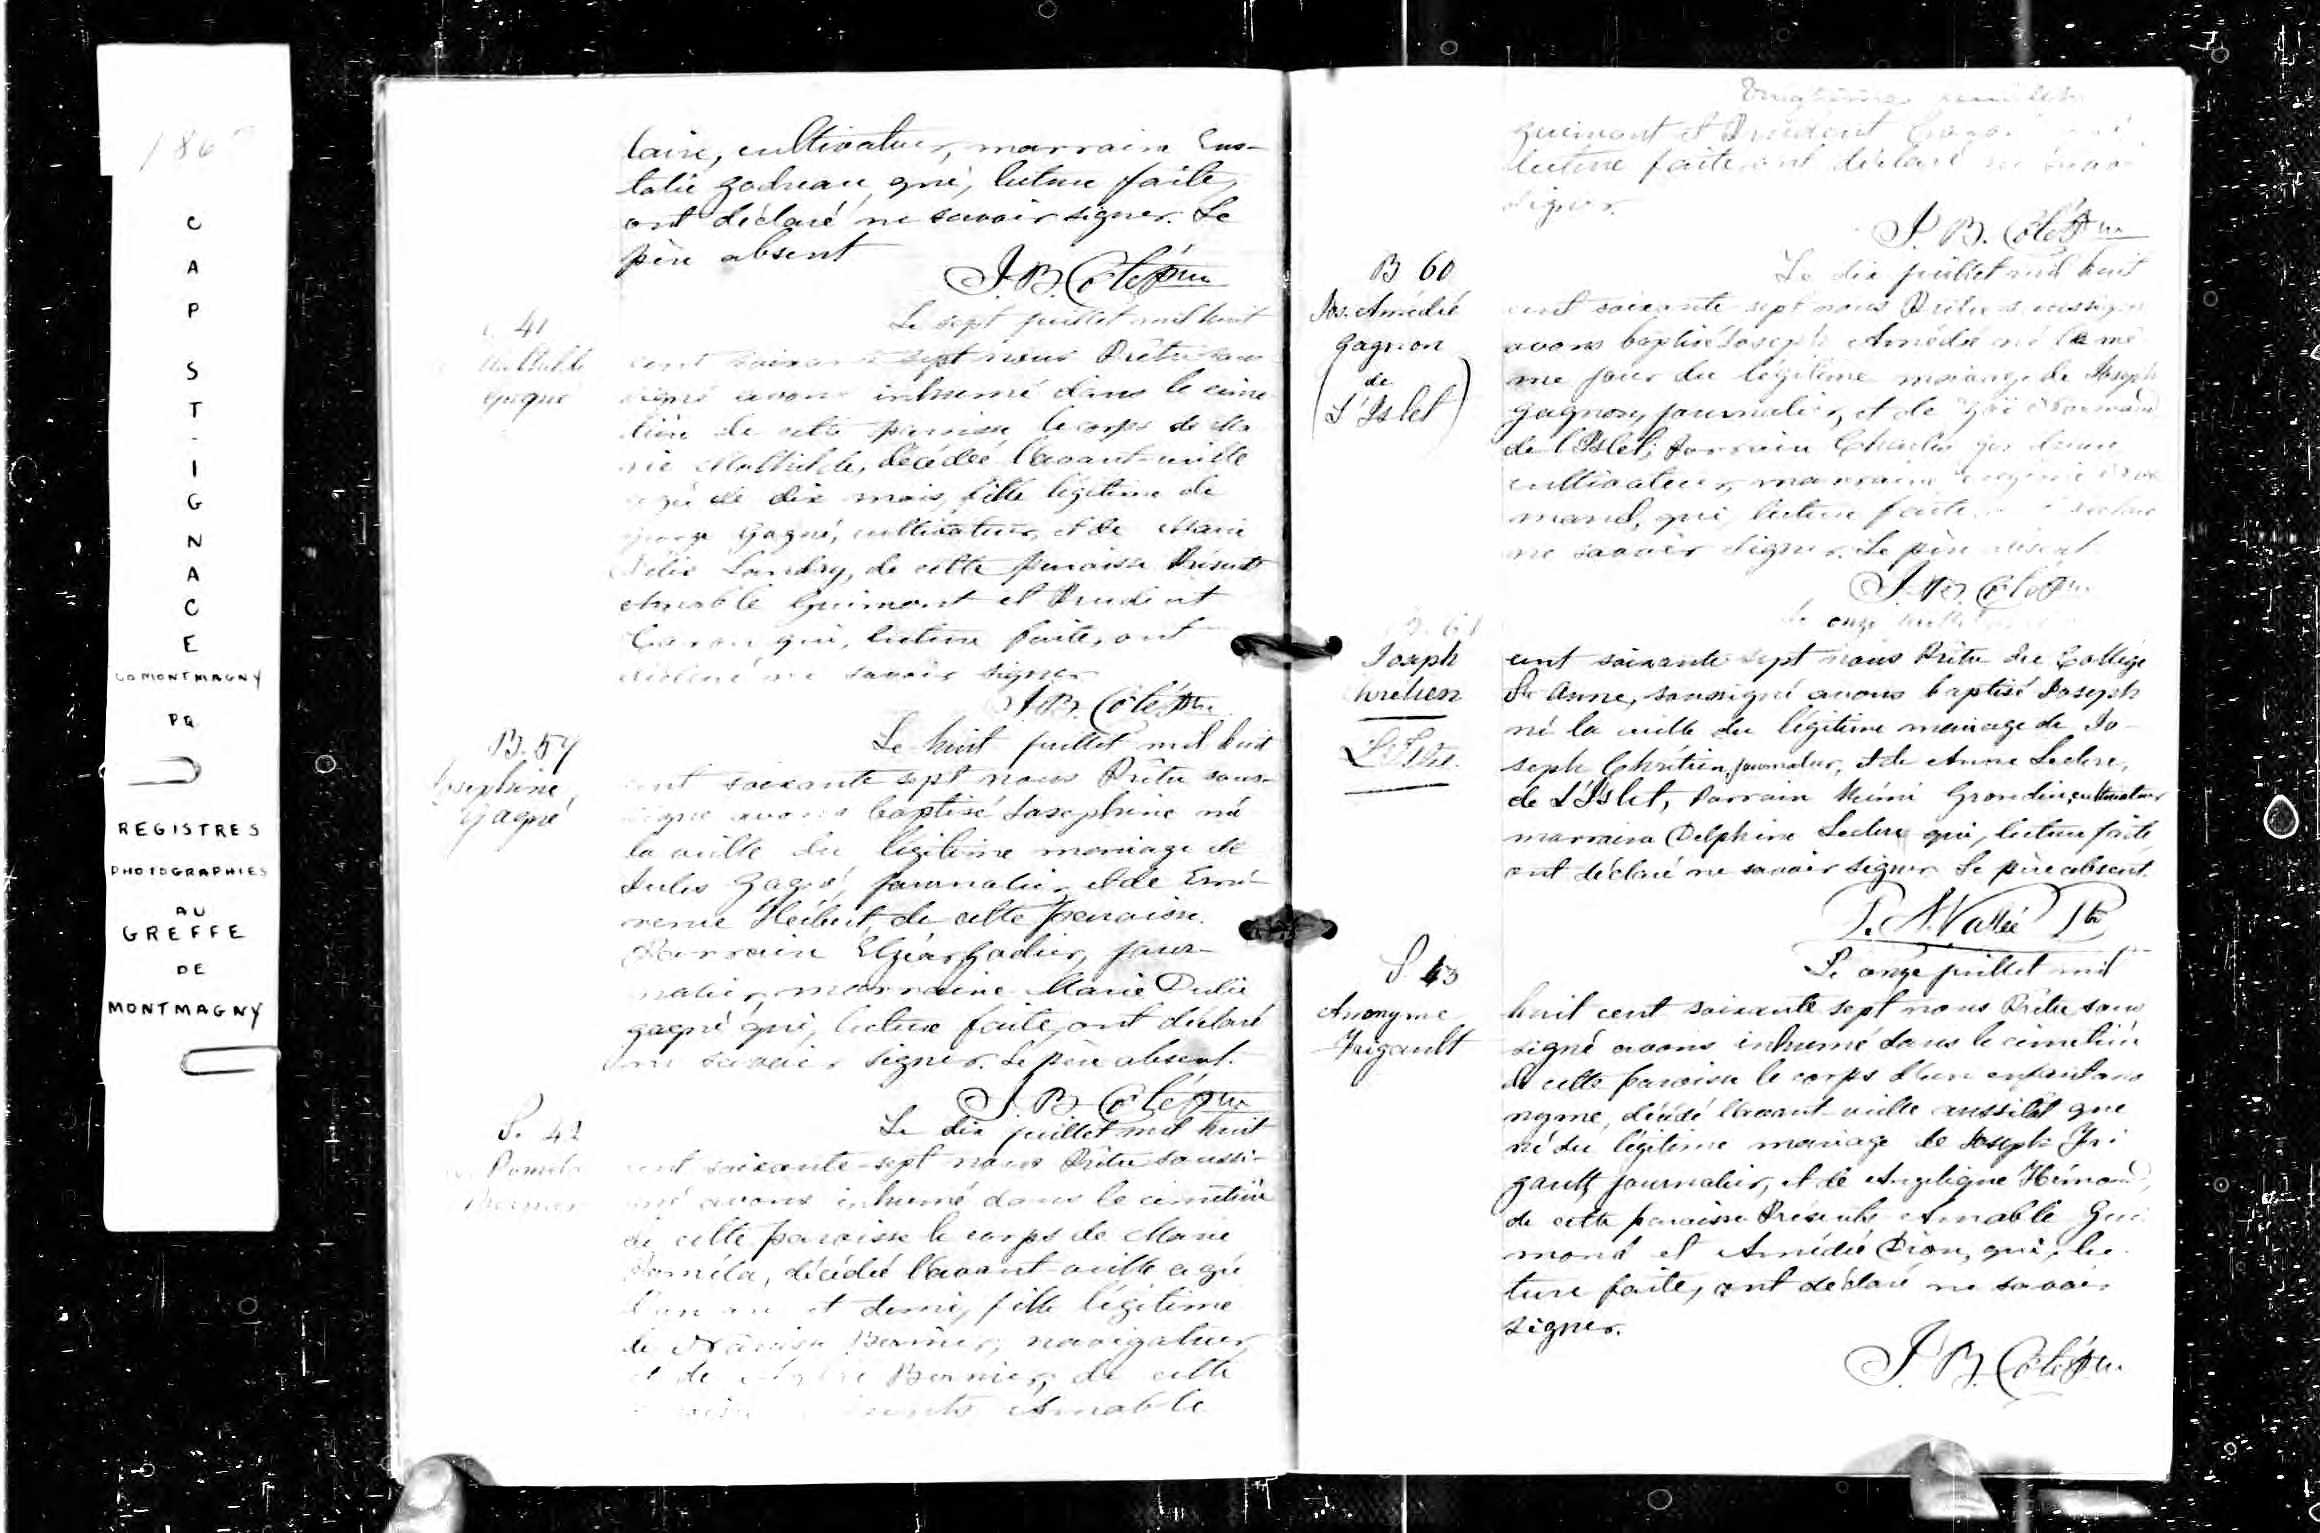 186
CAP ST-IGNACE
CO MONTMAGNY
PQ
REGISTRES
PHOTOGRAPHIES
AU
GREFFE
DE
MONTMAGNY
laire, cultivateur, marraine Eus-
talie Godreau, qui, lecture faite,
ont déclaré ne savoir signer. Le
père absent
J. B. Côté Ptre
41
Mathilde
Gagné
Le sept juillet mil huit
cent soixante sept nous Prêtre sous
signé avons inhumé dans le cime
tière de cette paroisse le corps de Ma
rie Mathilde, décédée l'avant-veille
agée de dix mois, fille légitime de
George Gagné, cultivateur, et de Marie
Landry, de cette paroisse Présents
Amable Guimont et Prudent
Caron qui, lecture faite, ont
déclaré ne savoir signer
J. B. Côté Ptre
B. 59
Josephine
Gagné
Le huit juillet mil huit
cent soixante sept nous Prêtre sous-
signé avons baptisé Josephine née
la veille du légitime mariage de
Jules Gagné, journalier, et de Emé-
rence Hébert, de cette paroisse.
Parrain Elzéar Gadier, jour-
nalier, marraine Marie Delie
Gagné qui, lecture faite, ont déclaré
ne savoir signer. Le père absent.
J. B. Côté Ptre
S. 42
Paméla
Bernier
Le dix juillet mil huit
cent soixante-sept nous Prêtre soussi-
gné avons inhumé dans le cimetière
de cette paroisse le corps de Marie
Paméla, décédée l'avant veille agée
d'un an et demi, fille légitime
de Narcisse Bernier, navigateur,
et de Bernier, de cette
paroisse Présents Amable
Vingtième feuillet
Guimont et Prudent Caron qui
lecture faite ont déclaré ne savoir
signer.
J. B. Côté Ptre
B 60
Jos. Amédée
Gagnon
(de
L'Islet)
Le dix juillet mil huit
cent soixante sept nous Prêtre soussigné
avons baptisé Joseph Amédée né le mê
me jour du légitime mariage de Joseph
Gagnon, journalier, et de Zoé Normand
de l'Islet; Parrain Charles
cultivateur, marraine Nor
mand, qui, lecture faite, ont déclaré
ne savoir signer. Le père absent
J. B. Côté Ptre
B. 61
Joseph
Chretien
L'Islet.
Le onze juillet mil huit
cent soixante sept nous Prêtre du Collège
Ste Anne, soussigné avons baptisé Joseph
né la veille du légitime mariage de Jo-
seph Chrétien, journalier, et de Anne Leclerc,
de L'Islet, Parrain Rémi Grondin, cultivateur
marraine Delphine Leclerc qui, lecture faite
ont déclaré ne savoir signer Le père absent.
P. N. Vallée Ptr
S. 43
Anonyme
Frigault
Le onze juillet mil
huit cent soixante sept nous Prêtre sous
signé avons inhumé dans le cimetière
de cette paroisse le corps d'un enfant ano
nyme, décédé l'avant-veille aussitôt que
né du légitime mariage de Joseph Fri
gault, journalier, et de Angélique Hémond,
de cette paroisse Présents Amable Gui
mond et Amédée Dion, qui, lec-
ture faite, ont déclaré ne savoir
signer.
J. B. Côté Ptre